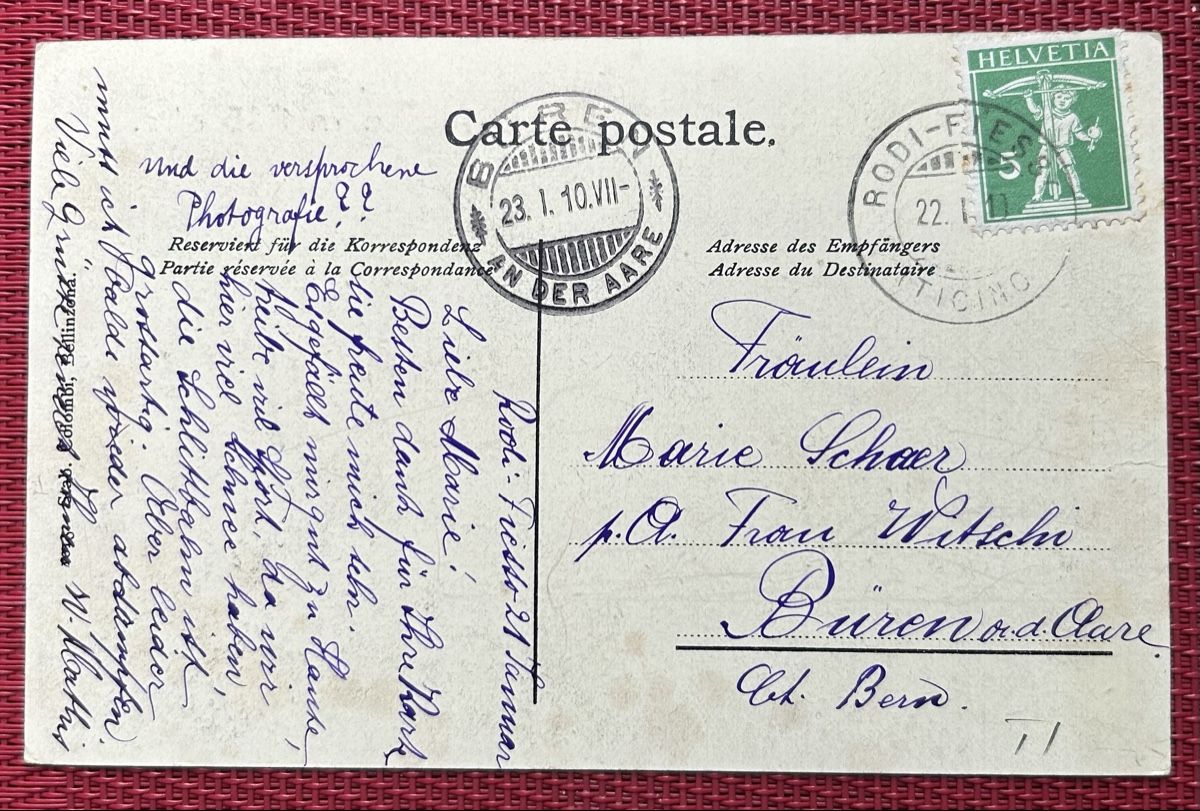 Carte postale.
HELVETIA
5
RODI-FIESSO
22. I. 10
(TICINO)
BÜREN
23. I. 10. VII-
AN DER AARE
Reserviert für die Korrespondenz
Partie réservée à la Correspondance
Adresse des Empfängers
Adresse du Destinataire
Fräulein
Marie Schaer
p. A. Frau Witschi
Büren a. d. Aare
Ct. Bern.
Rodi-Fiesso 21 Januar
Liebe Marie!
Besten dank für Ihre Karte
sie freute mich sehr.
Es gefällt mir gut zu Hause,
treibe viel Sport, da wir
hier viel Schnee haben,
die Schlittbahn ist
grossartig. Aber leider
muss ich balde wieder abdampfen
Viele Grüsse W. Mathis
Und die versprochene
Photografie??
Colombi, Bellinzona.